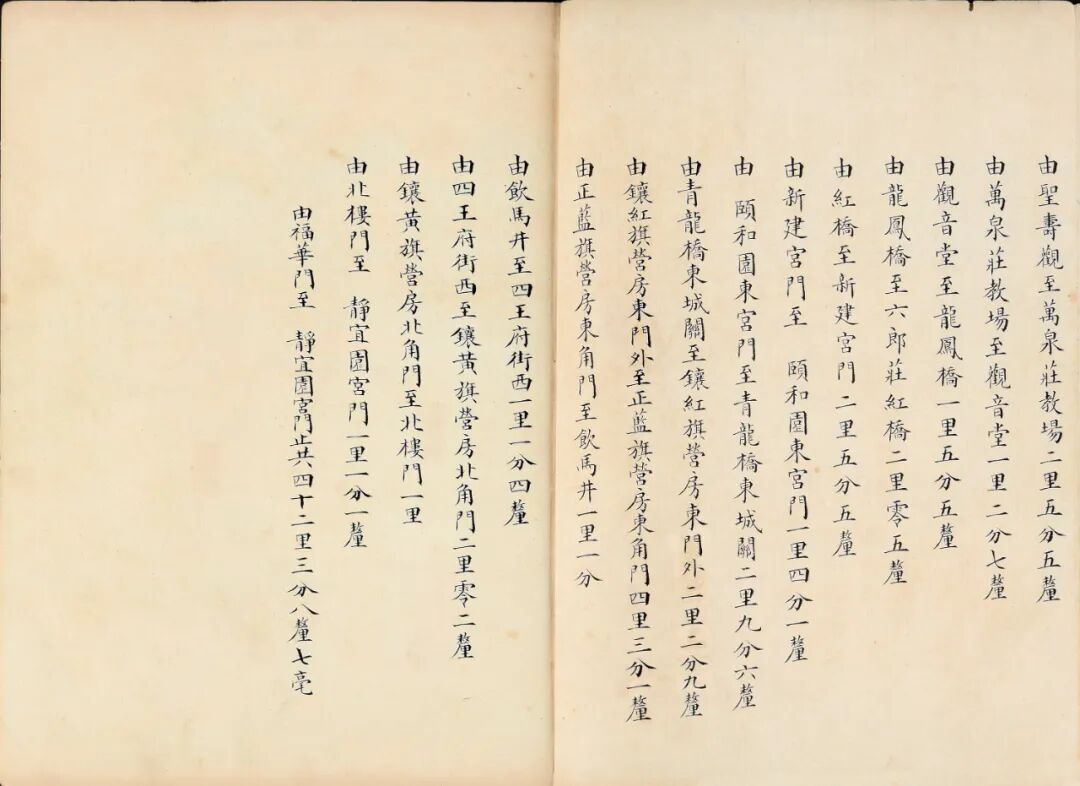 由聖壽觀至萬泉莊教場二里五分五釐
由萬泉莊教場至觀音堂一里二分七釐
由觀音堂至龍鳳橋一里五分五釐
由龍鳳橋至六郎莊紅橋二里零五釐
由紅橋至新建宮門二里五分五釐
由新建宮門至　頤和園東宮門一里四分一釐
由　頤和園東宮門至青龍橋東城關二里九分六釐
由青龍橋東城關至鑲紅旗營房東門外二里二分九釐
由鑲紅旗營房東門外至正藍旗營房東角門四里三分一釐
由正藍旗營房東角門至飲馬井一里一分
由飲馬井至四王府街西一里一分四釐
由四王府街西至鑲黃旗營房北角門二里零二釐
由鑲黃旗營房北角門至北樓門一里
由北樓門至　靜宜園宮門一里一分一釐
由福華門至　靜宜園宮門止共四十二里三分八釐七毫